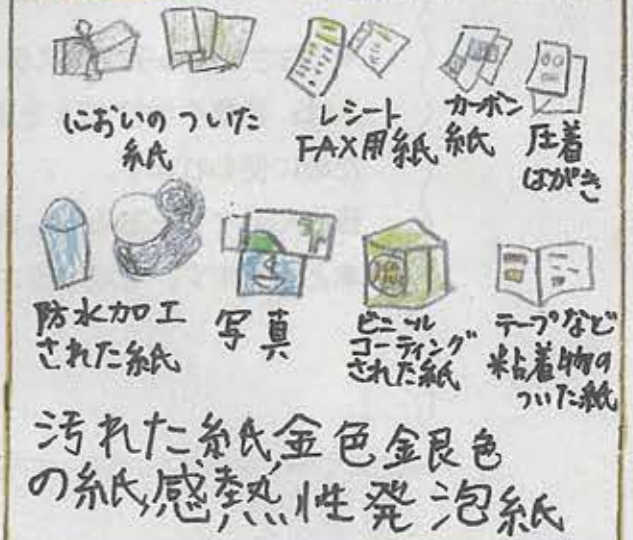 においのついた
紙
レシート
FAX用紙
カーボン
紙
圧着
はがき
防水加工
された紙
写真
ビニール
コーティング
された紙
テープなど
粘着物の
ついた紙
汚れた紙、金色銀色
の紙、感熱性発泡紙